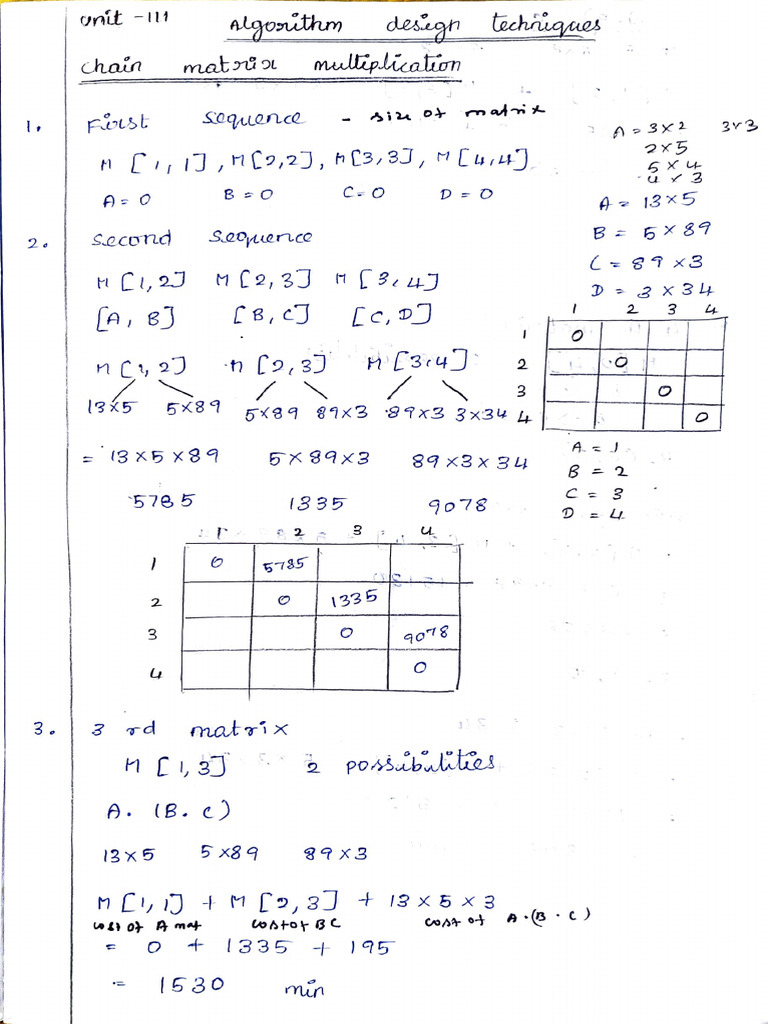 Unit - III Algorithm design techniques
Chain matrix multiplication
1. First sequence - size of matrix
M [1,1], M[2,2], M[3,3], M[4,4]
A = 0 B = 0 C = 0 D = 0
A = 3 x 2 3 x 3
2 x 5
5 x 4
4 x 3
A = 13 x 5
B = 5 x 89
C = 89 x 3
D = 3 x 34
2. Second sequence
M [1,2] M [2,3] M [3,4]
[A, B] [B, C] [C, D]
M [1,2] M [2,3] M [3,4]
13x5 5x89 5x89 89x3 89x3 3x34
= 13 x 5 x 89 5 x 89 x 3 89 x 3 x 34
5785 1335 9078
1 2 3 4
1 0
2 0
3 0
4 0
A = 1
B = 2
C = 3
D = 4
1 2 3 4
1 0 5785
2 0 1335
3 0 9078
4 0
3. 3 rd matrix
M [1,3] 2 possibilities
A. (B. C)
13 x 5 5 x 89 89 x 3
M [1,1] + M [2,3] + 13 x 5 x 3
cost of A mat cost of BC cost of A.(B.C)
= 0 + 1335 + 195
= 1530 min